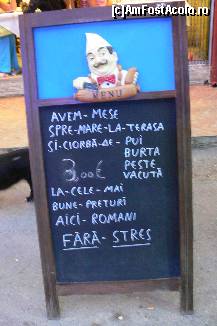 ©AmFostAcolo.ro
MENU
AVEM-MESE
SPRE-MARE-LA-TERASA
SI-CIORBĂ-DE- PUI
BURTA
3,00€ PESTE
VACUTĂ
LA-CELE-MAI
BUNE-PRETURI
AICI-ROMANI
FĂRĂ-STRES